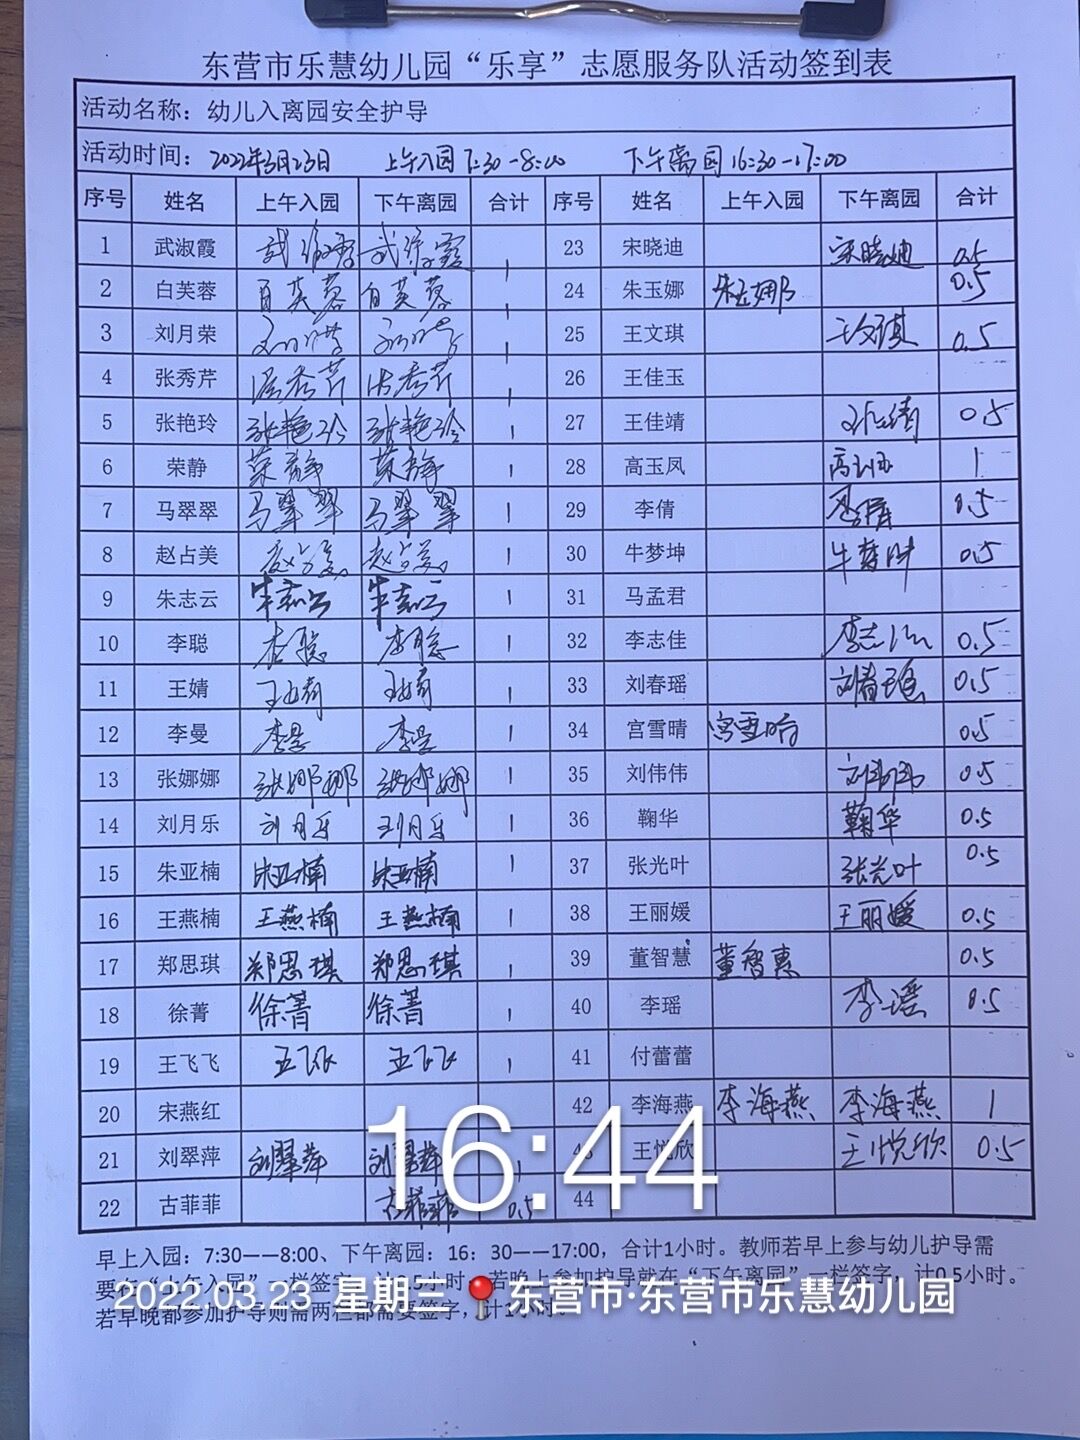 东营市乐慧幼儿园“乐享”志愿服务队活动签到表
活动名称：幼儿入离园安全护导
活动时间：2022年3月23日 上午入园7:30-8:00 下午离园16:30-17:00
序号 姓名 上午入园 下午离园 合计 序号 姓名 上午入园 下午离园 合计
1 武淑霞 武淑霞 武淑霞 1 23 宋晓迪 宋晓迪 0.5
2 白芙蓉 白芙蓉 白芙蓉 1 24 朱玉娜 朱玉娜 0.5
3 刘月荣 1 25 王文琪 王文琪 0.5
4 张秀芹 张秀芹 张秀芹 1 26 王佳玉
5 张艳玲 张艳玲 张艳玲 1 27 王佳靖 王佳靖 0.5
6 荣静 荣静 荣静 1 28 高玉凤 高玉凤 1
7 马翠翠 马翠翠 马翠翠 1 29 李倩 李倩 0.5
8 赵占美 赵占美 赵占美 1 30 牛梦坤 牛梦坤 0.5
9 朱志云 朱志云 朱志云 1 31 马孟君
10 李聪 李聪 李聪 1 32 李志佳 李志佳 0.5
11 王婧 王婧 王婧 1 33 刘春瑶 刘春瑶 0.5
12 李曼 李曼 李曼 1 34 宫雪晴 宫雪晴 0.5
13 张娜娜 张娜娜 张娜娜 1 35 刘伟伟 刘伟伟 0.5
14 刘月乐 刘月乐 刘月乐 1 36 鞠华 鞠华 0.5
15 朱亚楠 朱亚楠 朱亚楠 1 37 张光叶 张光叶 0.5
16 王燕楠 王燕楠 王燕楠 1 38 王丽媛 王丽媛 0.5
17 郑思琪 郑思琪 郑思琪 1 39 董智慧 董智惠 0.5
18 徐菁 徐菁 徐菁 1 40 李瑶 李瑶 0.5
19 王飞飞 王飞飞 王飞飞 1 41 付蕾蕾
20 宋燕红 42 李海燕 李海燕 李海燕 1
21 刘翠萍 刘翠萍 刘翠萍 1 43 王悦欣 王悦欣 0.5
22 古菲菲 古菲菲 0.5 44
16:44
早上入园：7:30——8:00、下午离园：16：30——17:00，合计1小时。教师若早上参与幼儿护导需
要在“上午入园”一栏签字，计0.5小时，若晚上参加护导就在“下午离园”一栏签字，计0.5小时。
若早晚都参加护导则需两栏都需要签字，计1小时。
2022.03.23 星期三 东营市·东营市乐慧幼儿园